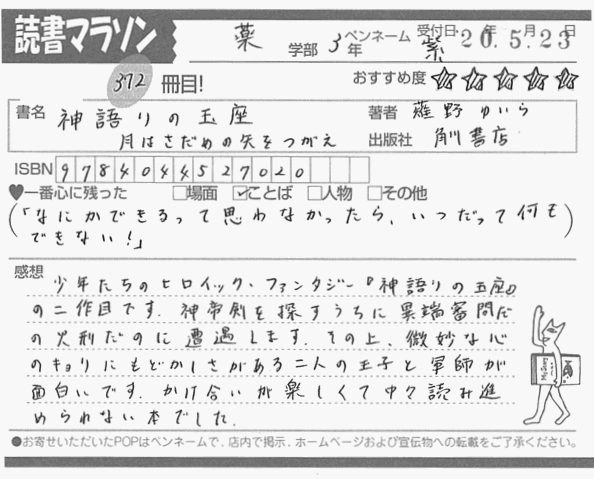 読書マラソン
薬 学部 3年 ペンネーム 紫 受付日 20年5月23日
372 冊目! おすすめ度 ☆☆☆☆☆
書名 神語りの玉座 著者 薙野ゆいら
月はさだめの矢をつがえ 出版社 角川書店
ISBN 9784044527020
♥一番心に残った □場面 ☑ことば □人物 □その他
(「なにかできるって思わなかったら、いつだって何も
できない!」)
感想 少年たちのヒロイック・ファンタジー『神語りの玉座』
の二作目です. 神帝剣を探すうちに異端審問だ
の火刑だのに遭遇します. その上、微妙な心
のキョリにもどかしさがある二人の王子と軍師が
面白いです. かけ合いが楽しくて中々読み進
められない本でした.
●お寄せいただいたPOPはペンネームで、店内で掲示、ホームページおよび宣伝物への転載をご了承ください。